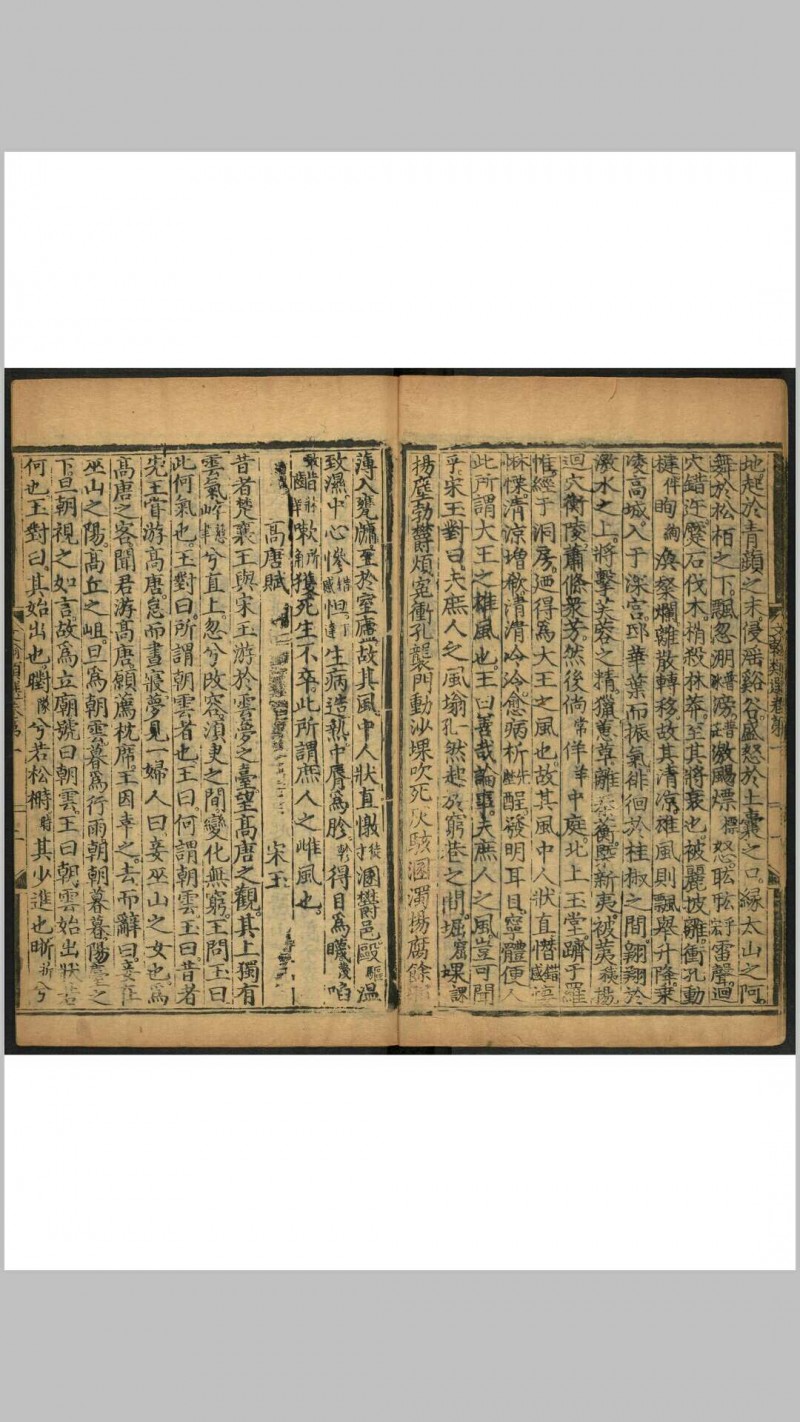 地起於青蘋之末侵滛谿谷盛怒於土囊之口緣太山之阿
舞於松柏之下飄忽淜滂激颺熛怒眩眩雷聲迴
穴錯迕蹷石伐木梢殺林莽至其將衰也被麗披離衝孔動
楗眴煥粲爛離散轉移故其清凉雄風則飄舉升降乗
凌高城入于深宮邸華葉而振氣徘徊於桂椒之間翱翔於
激水之上將擊芙蓉之精獵蕙草離秦衡槩新夷被荑楊
迴穴衝陵蕭條衆芳然後倘佯中庭北上玉堂躋于羅
惟經于洞房廼得為大王之風也故其風中人狀直憯
惏慄清凉增欷清清冷冷愈病析酲發明耳目寧體便人
此所謂大王之雄風也王曰善哉論事夫庶人之風豈可聞
乎宋玉對曰夫庶人之風塕孔然起於窮巷之間堀堁
揚塵勃欝煩寃衝孔襲門動沙堁吹死灰駭溷濁揚腐餘
薄入甕牖至於室廬故其風中人狀直憞溷欝邑毆溫
致濕中心慘怛生病造熱中脣為胗得目為䁾啗
齰嗽獲死生不卒此所謂庶人之雌風也
高唐賦 宋玉
昔者楚襄王與宋玉游於雲夢之臺望高唐之觀其上獨有
雲氣崪兮直上忽兮改容須臾之間變化無窮王問玉曰
此何氣也玉對曰所謂朝雲者也王曰何謂朝雲玉曰昔者
先王嘗游高唐怠而晝寢夢見一婦人曰妾巫山之女也為
高唐之客聞君游高唐願薦枕席王因幸之去而辭曰妾在
巫山之陽高丘之岨旦為朝雲暮為行雨朝朝暮暮陽臺之
下旦朝視之如言故為立廟號曰朝雲王曰朝雲始出狀若
何也玉對曰其始出也㬣兮若松榯其少進也晣兮